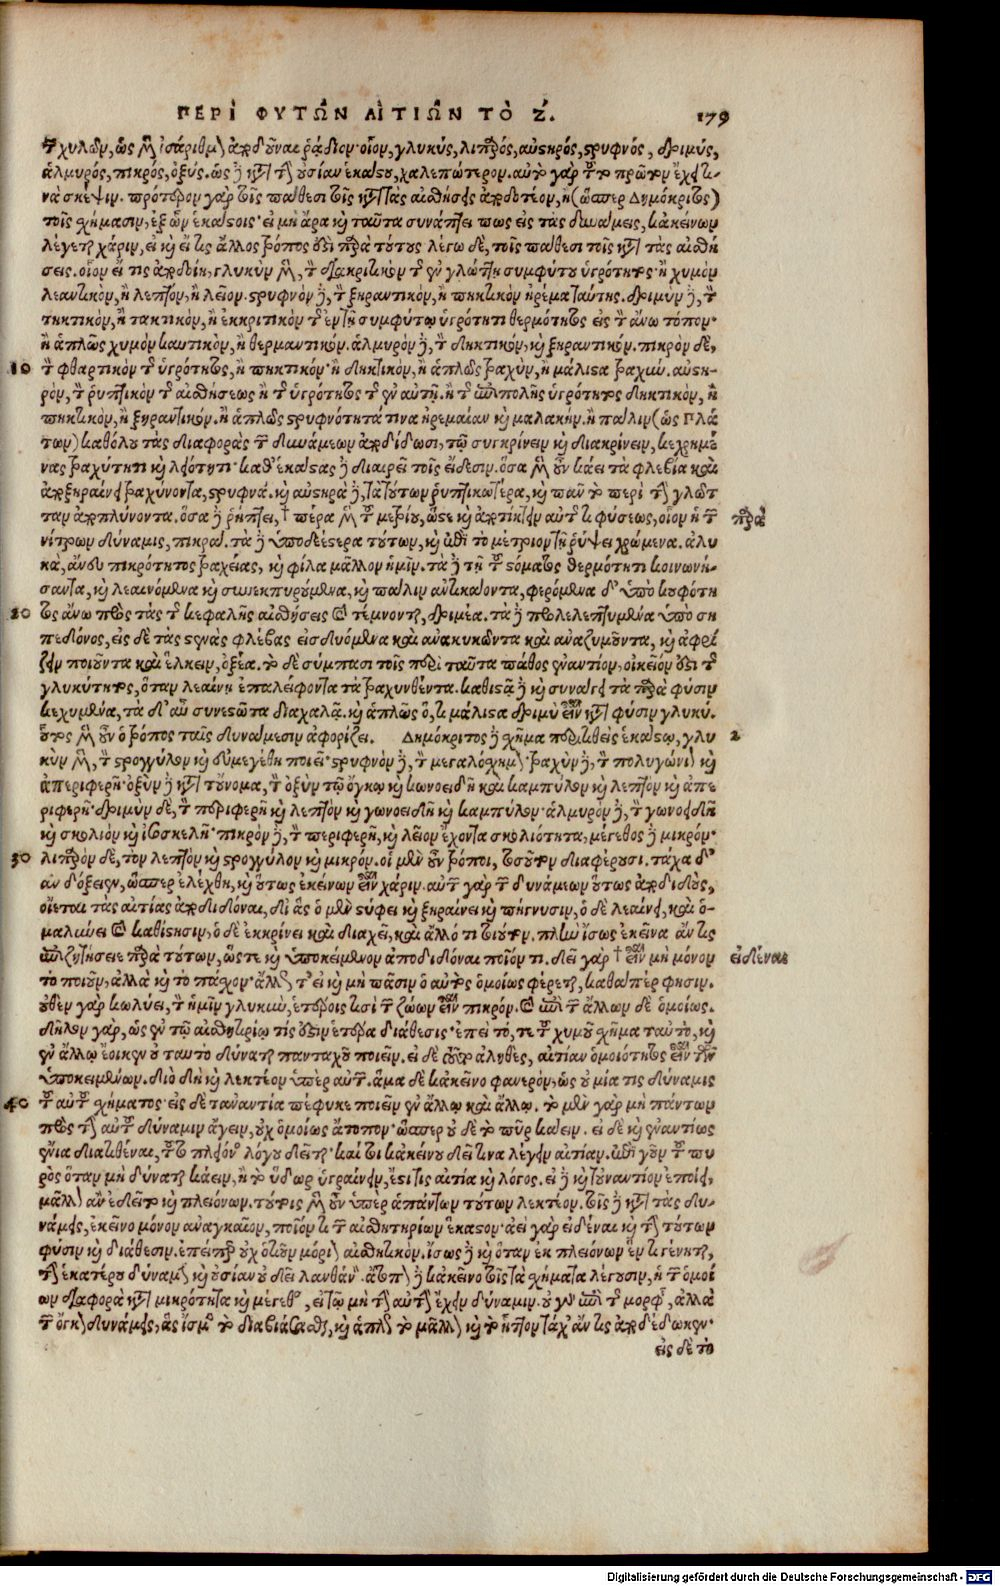 ΠΕΡΙ ΦΥΤΩΝ ΑΙΤΙΩΝ ΤΟ Ζ. 179
χυλῶν, ὡς μὲν ἰσάριθμ ἀποδοῦναι ῥάδιον· οἷον, γλυκύς, λιπαρός, αὐστηρός, στρυφνός, δριμύς,
ἁλμυρός, πικρός, ὀξύς. ὡς δὲ κατὰ τὴν οὐσίαν ἑκάστου, χαλεπώτερον. αὐτὸ γὰρ τοῦτο πρῶτον ἔχει τι-
νὰ σκέψιν. πρότερον γὰρ τοῖς πάθεσι τοῖς κατὰ τὰς αἰσθήσεις ἀποδοτέον, ἢ (ὥσπερ Δημόκριτος)
τοῖς σχήμασιν, ἐξ ὧν ἕκαστοις· εἰ μὴ ἄρα καὶ ταῦτα συνάπτει πως εἰς τὰς δυνάμεις, κἀκείνων
λέγεται χάριν, εἰ καὶ εἴ τις ἄλλος τρόπος ἐστὶ παρὰ τούτους λέγω δὲ, τοῖς πάθεσι τοῖς κατὰ τὰς αἰσθή
σεις. οἷον εἴ τις ἀποδοίη, γλυκὺν μὲν, τὸ διακριτικὸν τοῦ ἐν γλώττῃ συμφύτου ὑγρότητος· ἢ χυμὸν
λεαντικὸν, ἢ λεπτὸν, ἢ λεῖον. στρυφνὸν δὲ, τὸ ξηραντικὸν, ἢ πηκτικὸν ἠρέμα ταύτης. δριμὺν δὲ, τὸ
τηκτικὸν, ἢ τακτικὸν, ἢ ἐκκριτικὸν τοῦ ἐν τῇ συμφύτῳ ὑγρότητι θερμότητος εἰς τὸ ἄνω τόπον·
ἢ ἁπλῶς χυμὸν καυτικὸν, ἢ θερμαντικόν. ἁλμυρὸν δὲ, τὸ δηκτικὸν, καὶ ξηραντικόν. πικρὸν δὲ,
10 τὸ φθαρτικὸν τῆς ὑγρότητος, ἢ πηκτικὸν· ἢ δηκτικὸν, ἢ ἁπλῶς τραχὺν, ἢ μάλιστα τραχύν. αὐστη-
ρὸν, τὸ ῥυπτικὸν τῆς αἰσθήσεως ἢ τῆς ὑγρότητος τῆς ἐν αὐτῇ. ἢ τῆς ἐπιπολῆς ὑγρότητος δηκτικὸν, ἢ
πηκτικὸν, ἢ ξηραντικόν. ἢ ἁπλῶς στρυφνότητά τινα ἠρεμαίαν καὶ μαλακήν. ἢ πάλιν (ὡς Πλά
των) καθόλου τὰς διαφορὰς τῶν δυνάμεων ἀποδίδωσι, τῷ συγκρίνειν καὶ διακρίνειν, κεχρημέ
νας τραχύτητι καὶ λειότητι· καθ' ἑκάστας δὲ διαιρεῖ τοῖς εἴδεσιν. ὅσα μὲν οὖν κάει τὰ φλεβία καὶ
ἀποξηραίνει τραχύνοντα, στρυφνά. καὶ αὐστηρὰ δὲ, τὰ τούτων ῥυπτικώτερα, καὶ πᾶν τὸ περὶ τὴν γλῶτ
ταν ἀποπλύνοντα. ὅσα δὲ ῥύπτει, † πέρα μὲν τοῦ μετρίου, ὥστε καὶ ἀποτήκειν αὐτῆς τι φύσεως, οἷον ἡ τῶν παρὰ
νίτρων δύναμις, πικρά. τὰ δὲ ὑποδεέστερα τούτων, καὶ ἐπὶ τὸ μέτριον τῇ ῥύψει χρώμενα. ἁλυ
κὰ, ἄνευ πικρότητος τραχείας, καὶ φίλα μᾶλλον ἡμῖν. τὰ δὲ τῇ τοῦ στόματος θερμότητι κοινωνή-
σαντα, καὶ λεαινόμενα καὶ συνεκπυρούμενα, καὶ πάλιν ἀντικάοντα, φερόμενα δ' ὑπὸ κουφότη
20 τος ἄνω πρὸς τὰς τῆς κεφαλῆς αἰσθήσεις καὶ τέμνοντα, δριμέα. τὰ δὲ προλελεπτυσμένα ὑπὸ ση
πεδόνος, εἰς δὲ τὰς στενὰς φλέβας εἰσδυόμενα καὶ ἀνακυκῶντα καὶ ἀναζυμοῦντα, καὶ ἀφρί
ζειν ποιοῦντα καὶ ἕλκειν, ὀξέα. τὸ δὲ σύμπασι τοῖς περὶ ταῦτα πάθος ἐναντίον, οἰκεῖόν ἐστι τῆς
γλυκύτητος, ὅταν λεαίνῃ ἐπαλείφοντα τὰ τραχυνθέντα. καθιστᾷ δὲ καὶ συνάγει τὰ παρὰ φύσιν
κεχυμένα, τὰ δ' αὖ συνεστῶτα διαχαλᾷ. καὶ ἁπλῶς ὅ,τι μάλιστα δριμὺ εἶναι κατὰ φύσιν γλυκύ.
οὗτος μὲν οὖν ὁ τρόπος ταῖς δυνάμεσιν ἀφορίζει. Δημόκριτος δὲ σχῆμα περιτιθεὶς ἑκάστῳ, γλυ 2
κὺν μὲν, τὸ στρογγύλον καὶ εὐμεγέθη ποιεῖ· στρυφνὸν δὲ, τὸ μεγαλόσχημ τραχὺν δὲ, τὸ πολυγώνι καὶ
ἀπεριφερῆ· ὀξὺν δὲ κατὰ τοὔνομα, τὸ ὀξὺν τῷ ὄγκῳ καὶ κωνοειδῆ καὶ καμπύλον καὶ λεπτὸν καὶ ἀπε
ριφερῆ· δριμὺν δὲ, τὸ περιφερῆ καὶ λεπτὸν καὶ γωνοειδῆ καὶ καμπύλον· ἁλμυρὸν δὲ, τὸ γωνοειδῆ
καὶ σκολιὸν καὶ ἰσοσκελῆ· πικρὸν δὲ, τὸ περιφερῆ, καὶ λεῖον ἔχοντα σκολιότητα, μέγεθος δὲ μικρόν·
30 λιπαρὸν δὲ, τὸν λεπτὸν καὶ στρογγύλον καὶ μικρόν. οἱ μὲν οὖν τρόποι, τοσοῦτον διαφέρουσι. τάχα δ'
ἂν δόξειεν, ὥσπερ ἐλέχθη, καὶ οὕτως ἐκείνων εἶναι χάριν. αὐτῶν γὰρ τῶν δυνάμεων οὕτως ἀποδιδοὺς,
οἴεται τὰς αἰτίας ἀποδιδόναι, δι' ἃς ὁ μὲν στύφει καὶ ξηραίνει καὶ πήγνυσιν, ὁ δὲ λεαίνει, καὶ ὁ-
μαλύνει καὶ καθίστησιν, ὁ δὲ ἐκκρίνει καὶ διαχεῖ, καὶ ἄλλό τι τοιοῦτον. πλὴν ἴσως ἐκεῖνα ἄν τις
ἐπιζητήσειε παρὰ τούτων, ὥστε καὶ ὑποκείμενον ἀποδιδόναι ποῖόν τι. δεῖ γὰρ † εἶναι μὴ μόνον εἰδέναι
τὸ ποιοῦν, ἀλλὰ καὶ τὸ πάσχον· ἄλλως τ' εἰ καὶ μὴ πᾶσιν ὁ αὐτὸς ὁμοίως φέρεται, καθάπερ φησιν.
οὐθὲν γὰρ κωλύει, τὸ ἡμῖν γλυκὺν, ἑτέροις τισὶ τῶν ζώων εἶναι πικρόν. καὶ ἐπὶ τῶν ἄλλων δὲ ὁμοίως.
δῆλον γὰρ, ὡς ἐν τῷ αἰσθητηρίῳ τίς ἐστιν ἑτέρα διάθεσις· ἐπεὶ τό, τε τοῦ χυμοῦ σχῆμα ταὐτὸ, καὶ
ἐν ἄλλῳ ἔοικεν οὐ ταὐτὸ δύναται πανταχοῦ ποιεῖν. εἰ δὲ τοῦτο ἀληθὲς, αἰτίαν ὁμοιότητος εἶναι τῶν
ὑποκειμένων. διὸ δὴ καὶ λεκτέον ὑπὲρ αὐτῶν. ἅμα δὲ κἀκεῖνο φανερὸν, ὡς οὐ μία τις δύναμις
40 τοῦ αὐτοῦ σχήματος· εἰς δὲ τἀναντία πέφυκε ποιεῖν ἐν ἄλλῳ καὶ ἄλλῳ. τὸ μὲν γὰρ μὴ πάντων
πρὸς τὴν αὐτοῦ δύναμιν ἄγειν, οὐχ ὁμοίως ἄτοπον· ὥσπερ οὐδὲ τὸ πῦρ κάειν. εἰ δὲ καὶ ἐναντίως
ἔνια διατιθέναι, τοῦτο πλείονος λόγου δεῖται· καίτοι κἀκείνου δεῖ τινα λέγειν αἰτίαν. ἐπὶ γοῦν τοῦ πυ
ρὸς ὅταν μὴ δύναται κάειν, ἢ τὸ ὕδωρ ὑγραίνειν, ἐστί τις αἰτία καὶ λόγος. εἰ δὲ καὶ τοὐναντίον ἐποίει,
μᾶλλον ἂν ἐδεῖτο καὶ πλειόνων. τούτοις μὲν οὖν ὑπὲρ ἁπάντων τούτων λεκτέον. τοῖς δὲ κατὰ τὰς δυ-
νάμεις, ἐκεῖνο μόνον ἀναγκαῖον, ποῖόν τι τῶν αἰσθητηρίων ἕκαστον· ἀεὶ γὰρ εἰδέναι καὶ τὴν τούτων
φύσιν καὶ διάθεσιν. ἐπείπερ οὐχ ὁτιοῦν μόριον αἰσθητικόν. ἴσως δὲ καὶ ὅταν ἐκ πλειόνων ἕν τι γένηται,
τὴν ἑκατέρου δύναμιν καὶ οὐσίαν οὐ δεῖ λανθάνειν. ἄτοπον δὲ κἀκεῖνο τοῖς τὰ σχήματα λέγουσιν, ἡ τῶν ὁμοί
ων διαφορὰ κατὰ μικρότητα καὶ μέγεθος, εἰς τὸ μὴ τὴν αὐτὴν ἔχειν δύναμιν. οὐ γὰρ ἐπὶ τῆς μορφῆς, ἀλλὰ
τῶν ὄγκων δυνάμεις, ἃς τὸ διαβιάσασθαι, καὶ ἁπλῶς τὸ μᾶλλον καὶ τὸ ἧττον τάχ' ἄν τις ἀποδέδωκεν·
εἰς δὲ τὸ
Digitalisierung gefördert durch die Deutsche Forschungsgemeinschaft - DFG